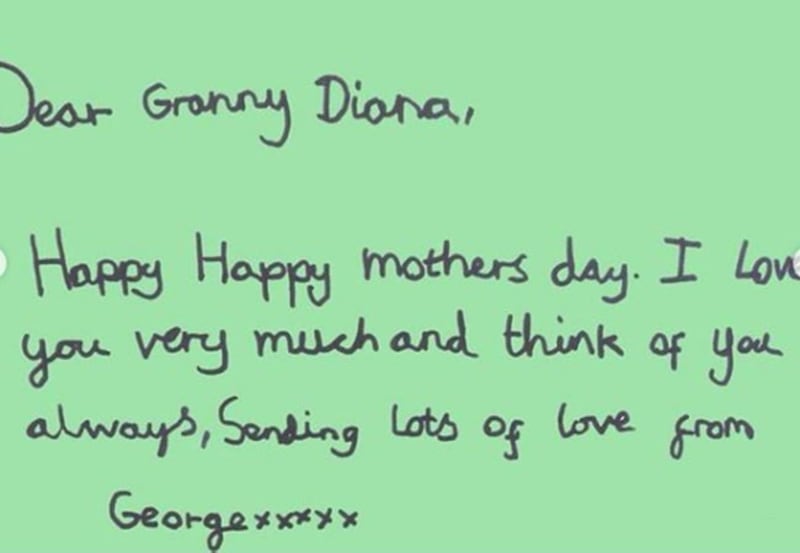 Dear Granny Diana,
Happy Happy mothers day. I Lov
you very much and think of you
always, Sending lots of love from
Georgexxxxx